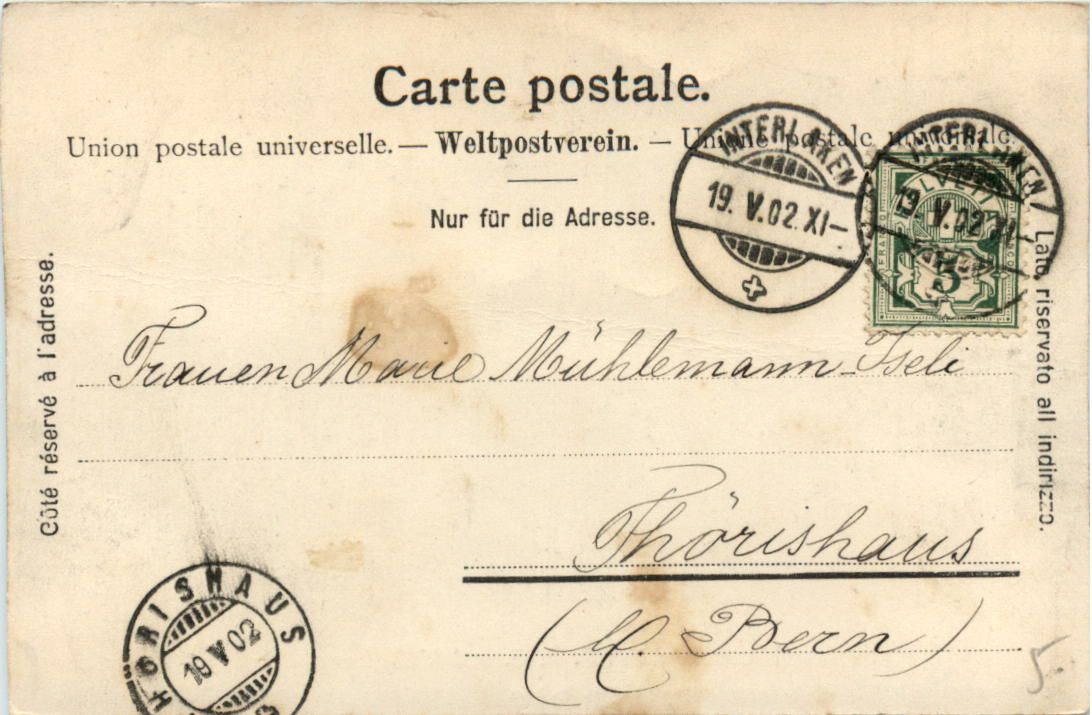 Carte postale.
Union postale universelle. — Weltpostverein. — Unione postale universale.
Nur für die Adresse.
INTERLAKEN
19. V. 02. XI–
INTERLAKEN
19. V. 02. XI–
FRANCO HELVETIA FRANCO
5
Côté réservé à l'adresse.
Lato riservato all indirizzo.
Frauen Marie Mühlemann-Iseli
Thörishaus
(Ct. Bern)
THÖRISHAUS
19 V 02
5.-